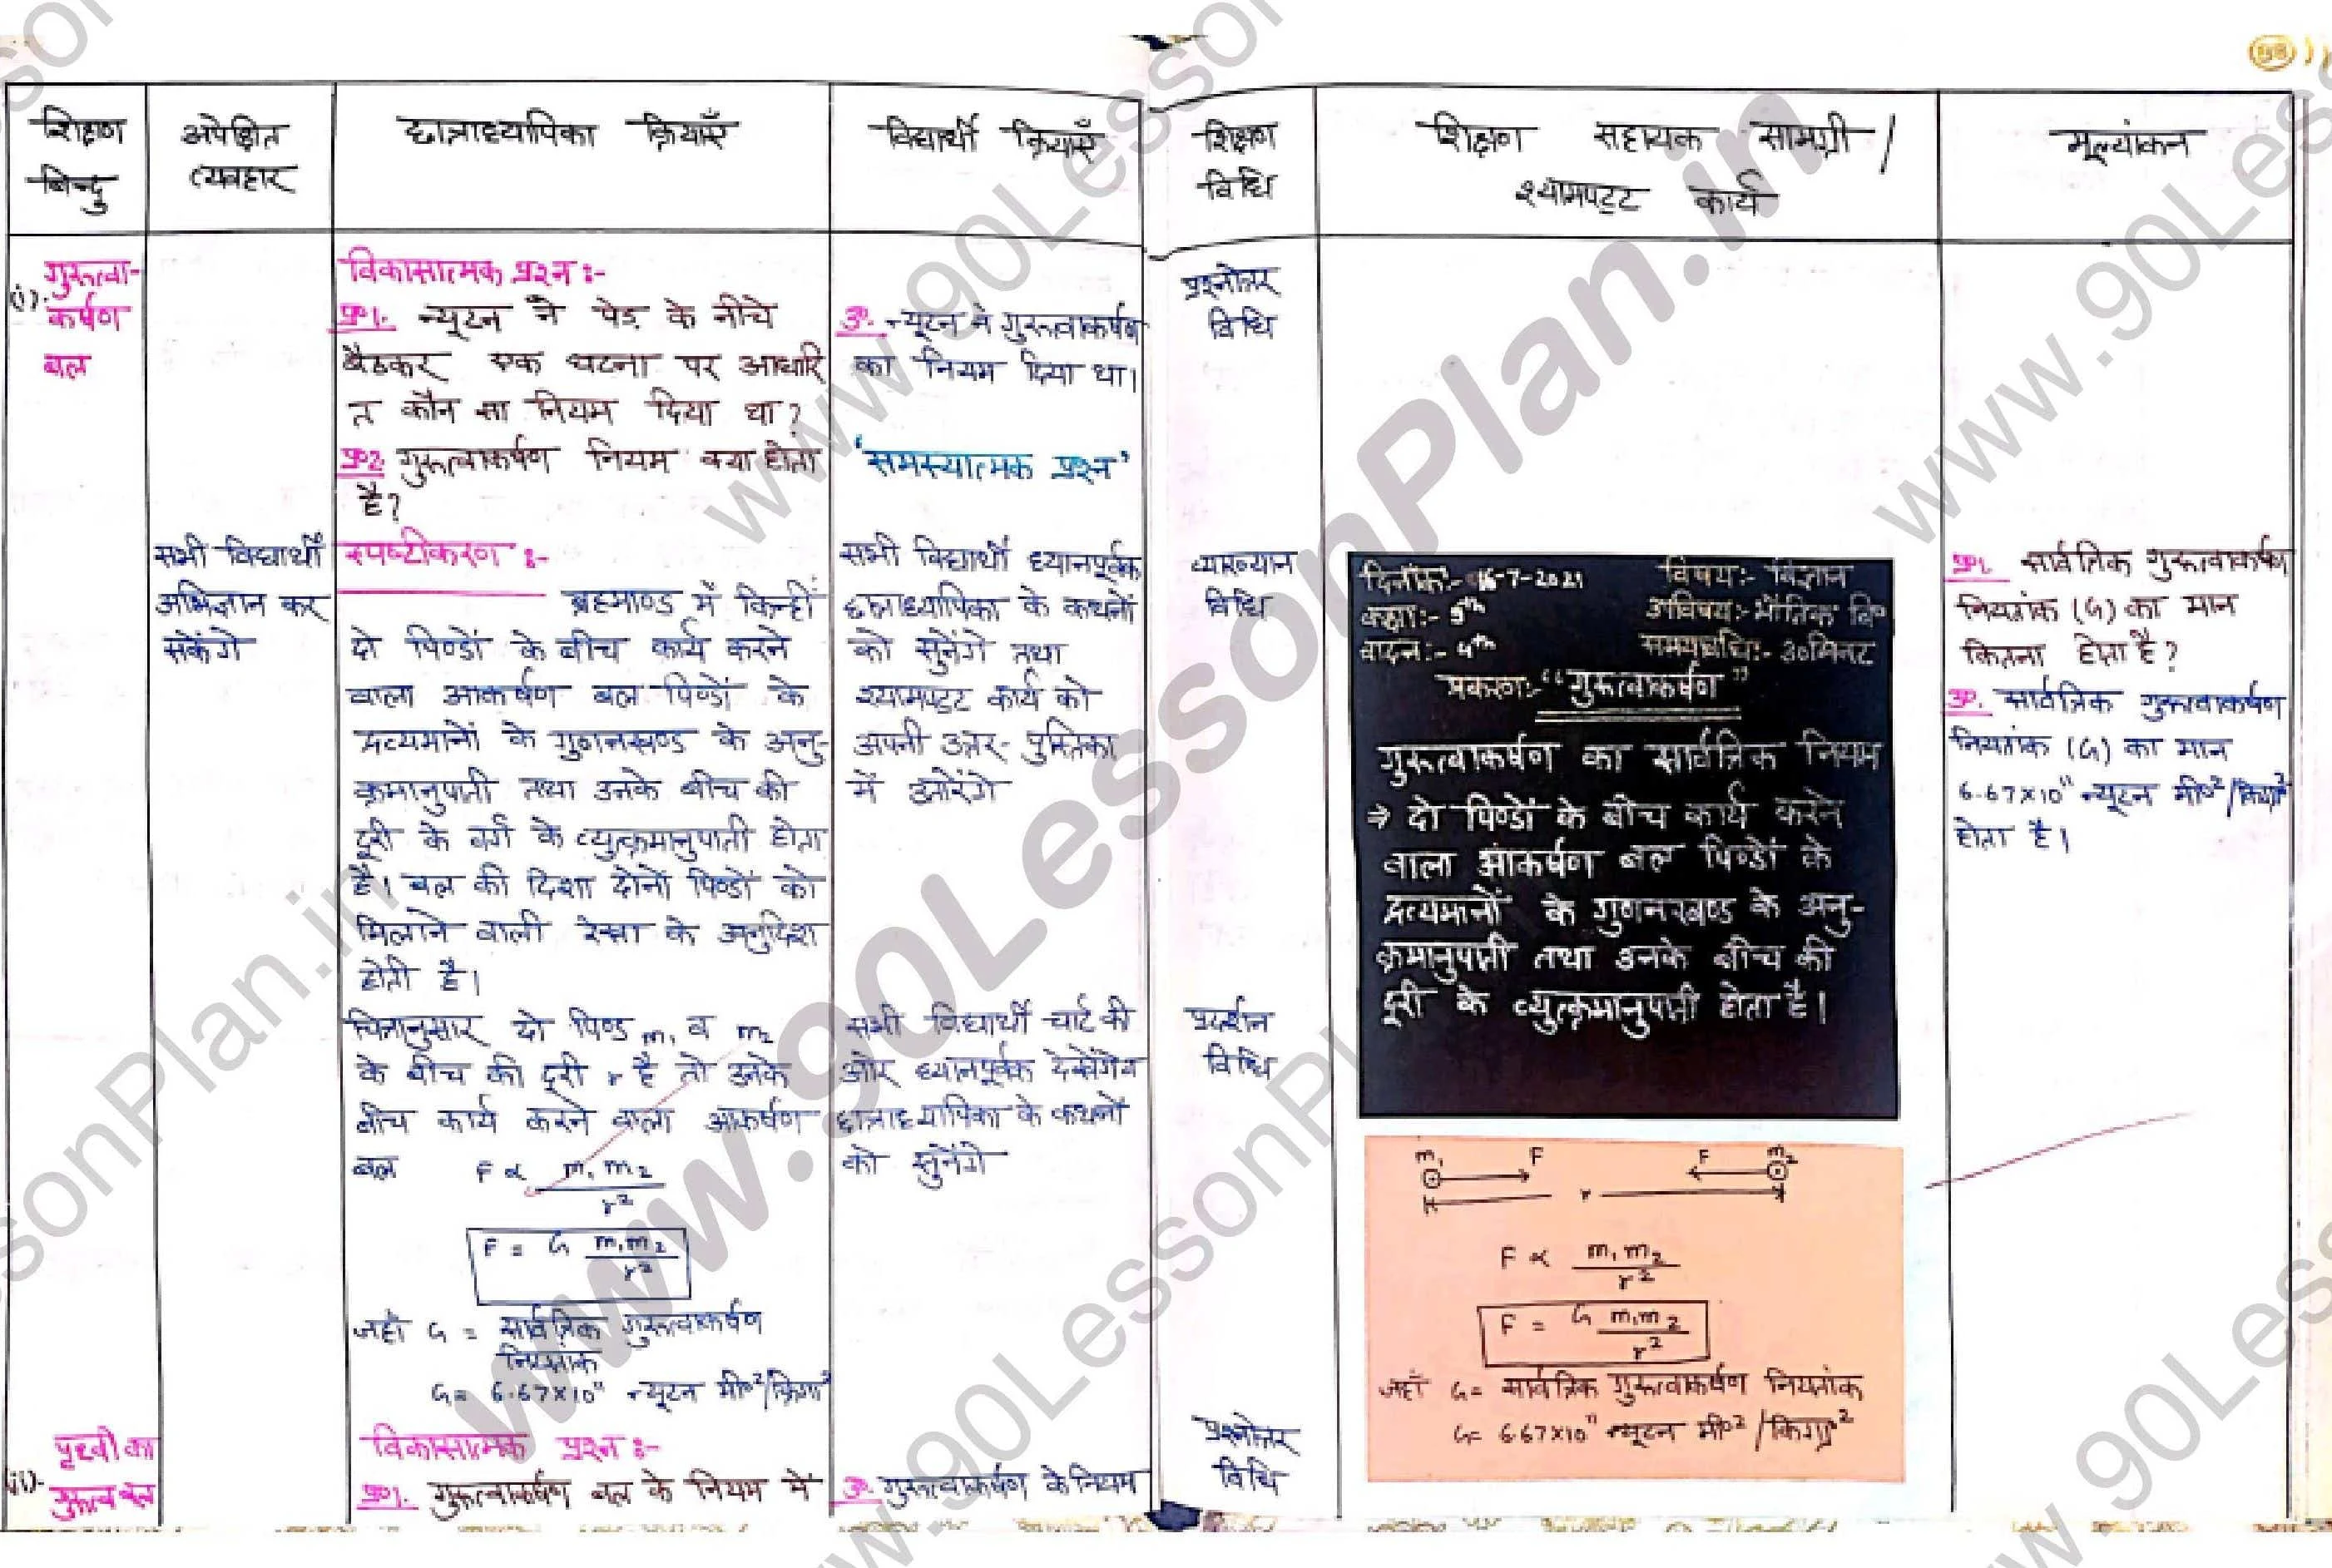 शिक्षण
बिन्दु
अपेक्षित
व्यवहार
छात्राध्यापिका क्रियाएँ
विद्यार्थी क्रियाएँ
शिक्षण
विधि
शिक्षण सहायक सामग्री /
श्यामपट्ट कार्य
मूल्यांकन
(i). गुरूत्वा-
कर्षण
बल
सभी विद्यार्थी
अभिज्ञान कर
सकेंगे
विकासात्मक प्रश्न :-
प्र०1. न्यूटन ने पेड़ के नीचे
बैठकर एक घटना पर आधारि
त कौन सा नियम दिया था?
प्र०2. गुरूत्वाकर्षण नियम क्या होता
है?
स्पष्टीकरण :-
ब्रहमाण्ड में किन्हीं
दो पिण्डों के बीच कार्य करने
वाला आकर्षण बल पिण्डों के
द्रव्यमानों के गुणनखण्ड के अनु-
क्रमानुपाती तथा उनके बीच की
दूरी के वर्ग के व्युत्क्रमानुपाती होता
है। बल की दिशा दोनों पिण्डों को
मिलाने वाली रेखा के अनुदिश
होती है।
चित्रानुसार दो पिण्ड m₁ व m₂
के बीच की दूरी r है तो उनके
बीच कार्य करने वाला आकर्षण
बल F ∝ m₁ m₂ / r²
F = G m₁m₂ / r²
जहाँ G = सार्वत्रिक गुरूत्वाकर्षण
नियतांक
G = 6.67×10¹¹ न्यूटन मी०²/किग्रा²
उ०. न्यूटन ने गुरूत्वाकर्षण
का नियम दिया था।
'समस्यात्मक प्रश्न'
सभी विद्यार्थी ध्यानपूर्वक
छात्राध्यापिका के कथनों
को सुनेंगे तथा
श्यामपट्ट कार्य को
अपनी उत्तर-पुस्तिका
में उतारेंगे
सभी विद्यार्थी चार्ट की
ओर ध्यानपूर्वक देखेंगे व
छात्राध्यापिका के कथनों
को सुनेंगे
प्रश्नोत्तर
विधि
व्याख्यान
विधि
प्रदर्शन
विधि
दिनांक:- 16-7-2021 विषय:- विज्ञान
कक्षा:- 9th उपविषय:- भौतिक वि०
वादन:- 4th समयावधि:- 30मिनट
प्रकरण:- "गुरूत्वाकर्षण"
गुरूत्वाकर्षण का सार्वत्रिक नियम
→ दो पिण्डों के बीच कार्य करने
वाला आकर्षण बल पिण्डों के
द्रव्यमानों के गुणनखण्ड के अनु-
क्रमानुपाती तथा उनके बीच की
दूरी के व्युत्क्रमानुपाती होता है।
m₁ F F m₂
r
F ∝ m₁ m₂ / r²
F = G m₁m₂ / r²
जहाँ G = सार्वत्रिक गुरूत्वाकर्षण नियतांक
G = 6.67×10¹¹ न्यूटन मी०²/किग्रा²
प्र०1. सार्वत्रिक गुरूत्वाकर्षण
नियतांक (G) का मान
कितना होता है?
उ०. सार्वत्रिक गुरूत्वाकर्षण
नियतांक (G) का मान
6.67×10¹¹ न्यूटन मी०²/किग्रा²
होता है।
(ii). पृथ्वी का
गुरूत्व बल
विकासात्मक प्रश्न :-
प्र०1. गुरूत्वाकर्षण बल के नियम में
उ०. गुरूत्वाकर्षण के नियम
प्रश्नोत्तर
विधि
www.90LessonPlan.in